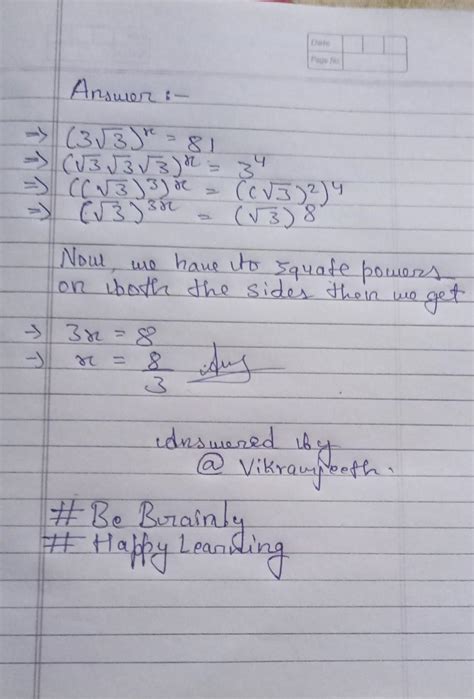 Date
Page No.
Answer :-
=> (3√3)^x = 81
=> (√3√3√3)^x = 3^4
=> ((√3)^3)^x = ((√3)^2)^4
=> (√3)^3x = (√3)^8
Now, we have to squate powers
on both the sides then we get
-> 3x = 8
-> x = 8/3 Ans
Answered by
@ Vikramjeeth.
# Be Brainly
# Happy Learning